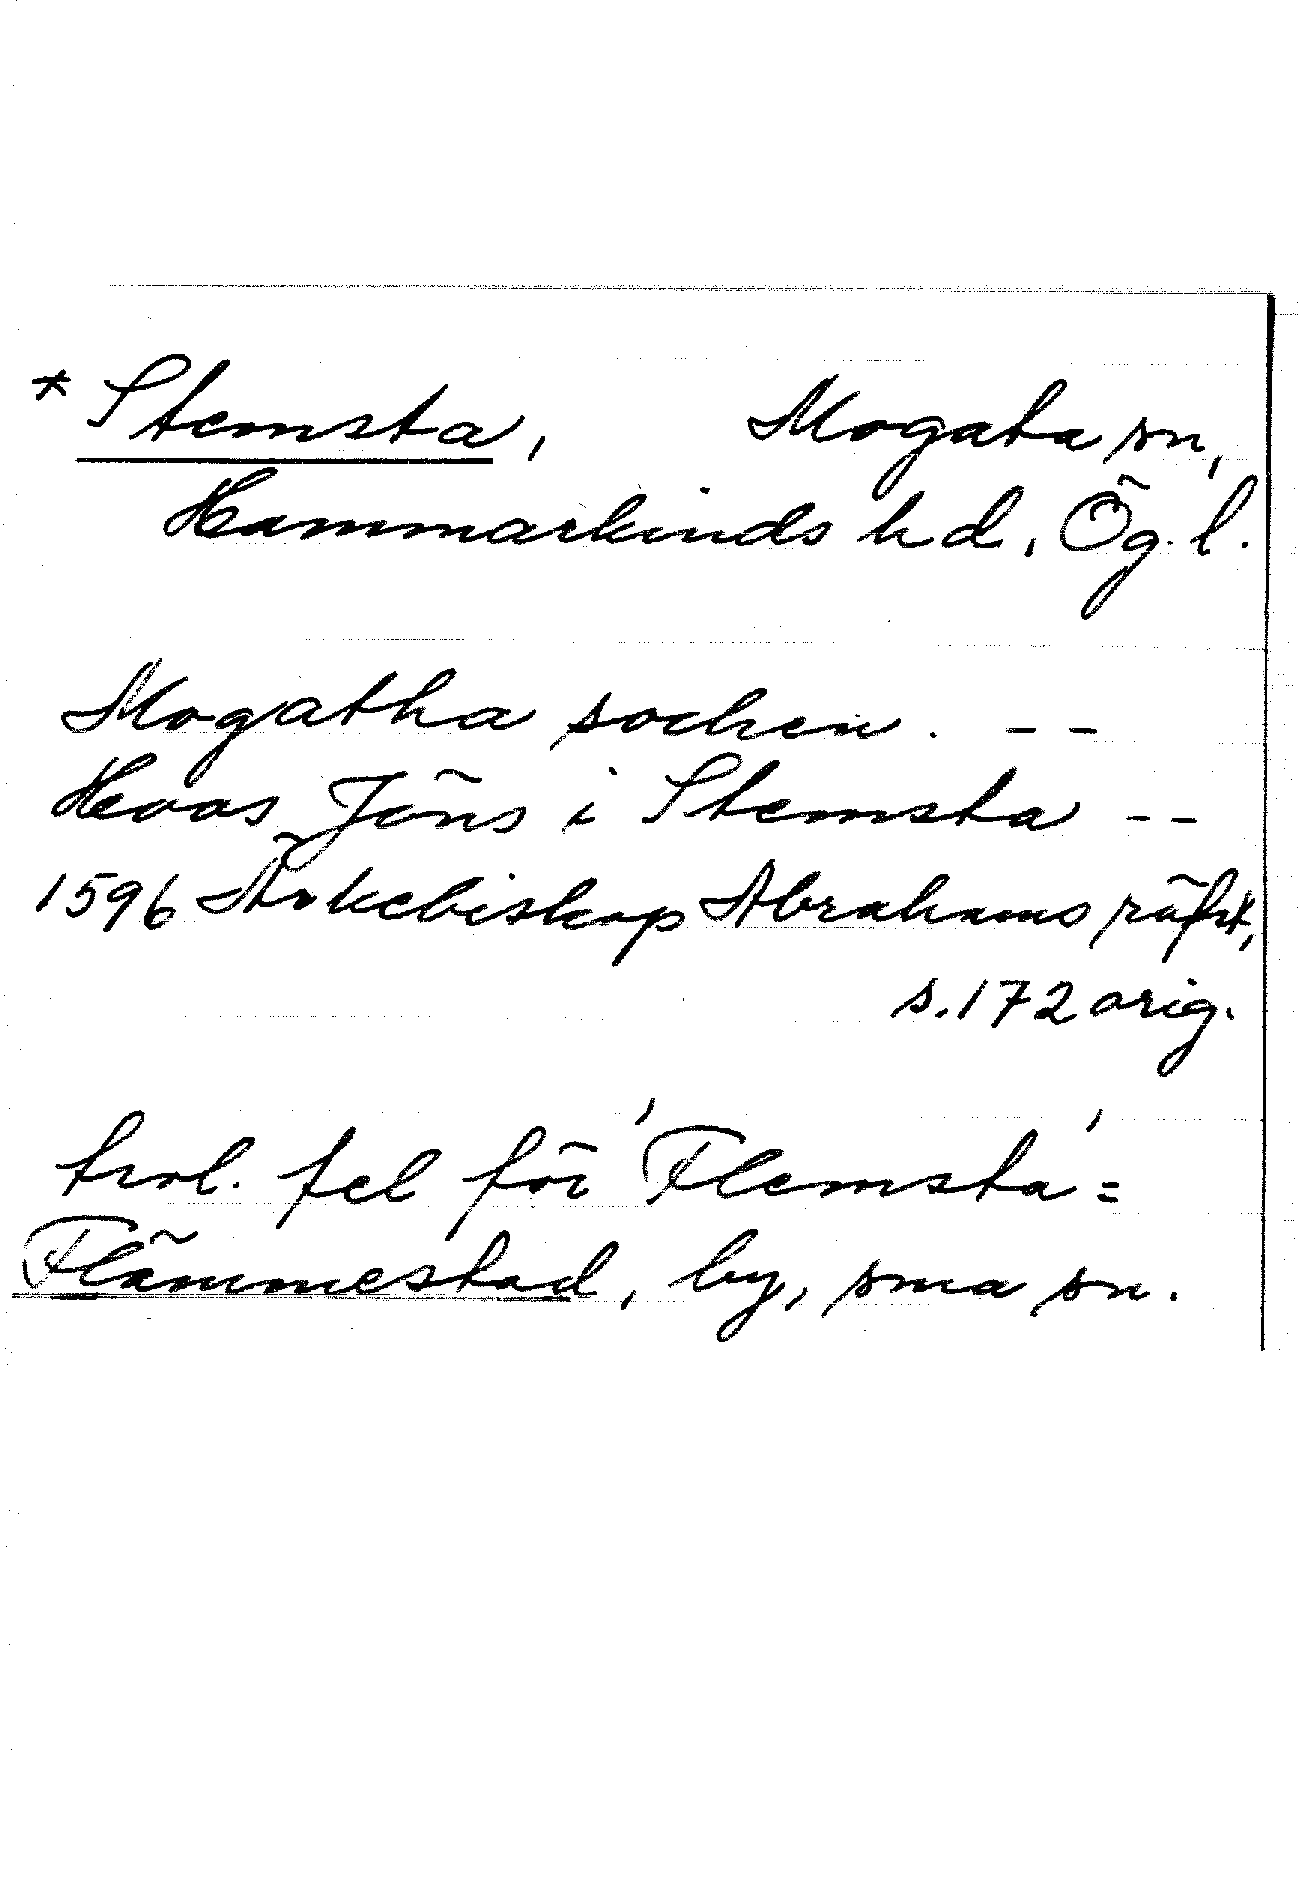 * Stemsta, Mogata sn,
Hammarkinds hd, Ög. l.
Mogatha sochen. --
Hevas Jöns i Stemsta --
1596 Ärkebiskop Abrahams räfst,
s. 172 orig.
trol. fel för 'Flemsta' =
Flämmestad, by, sma sn.